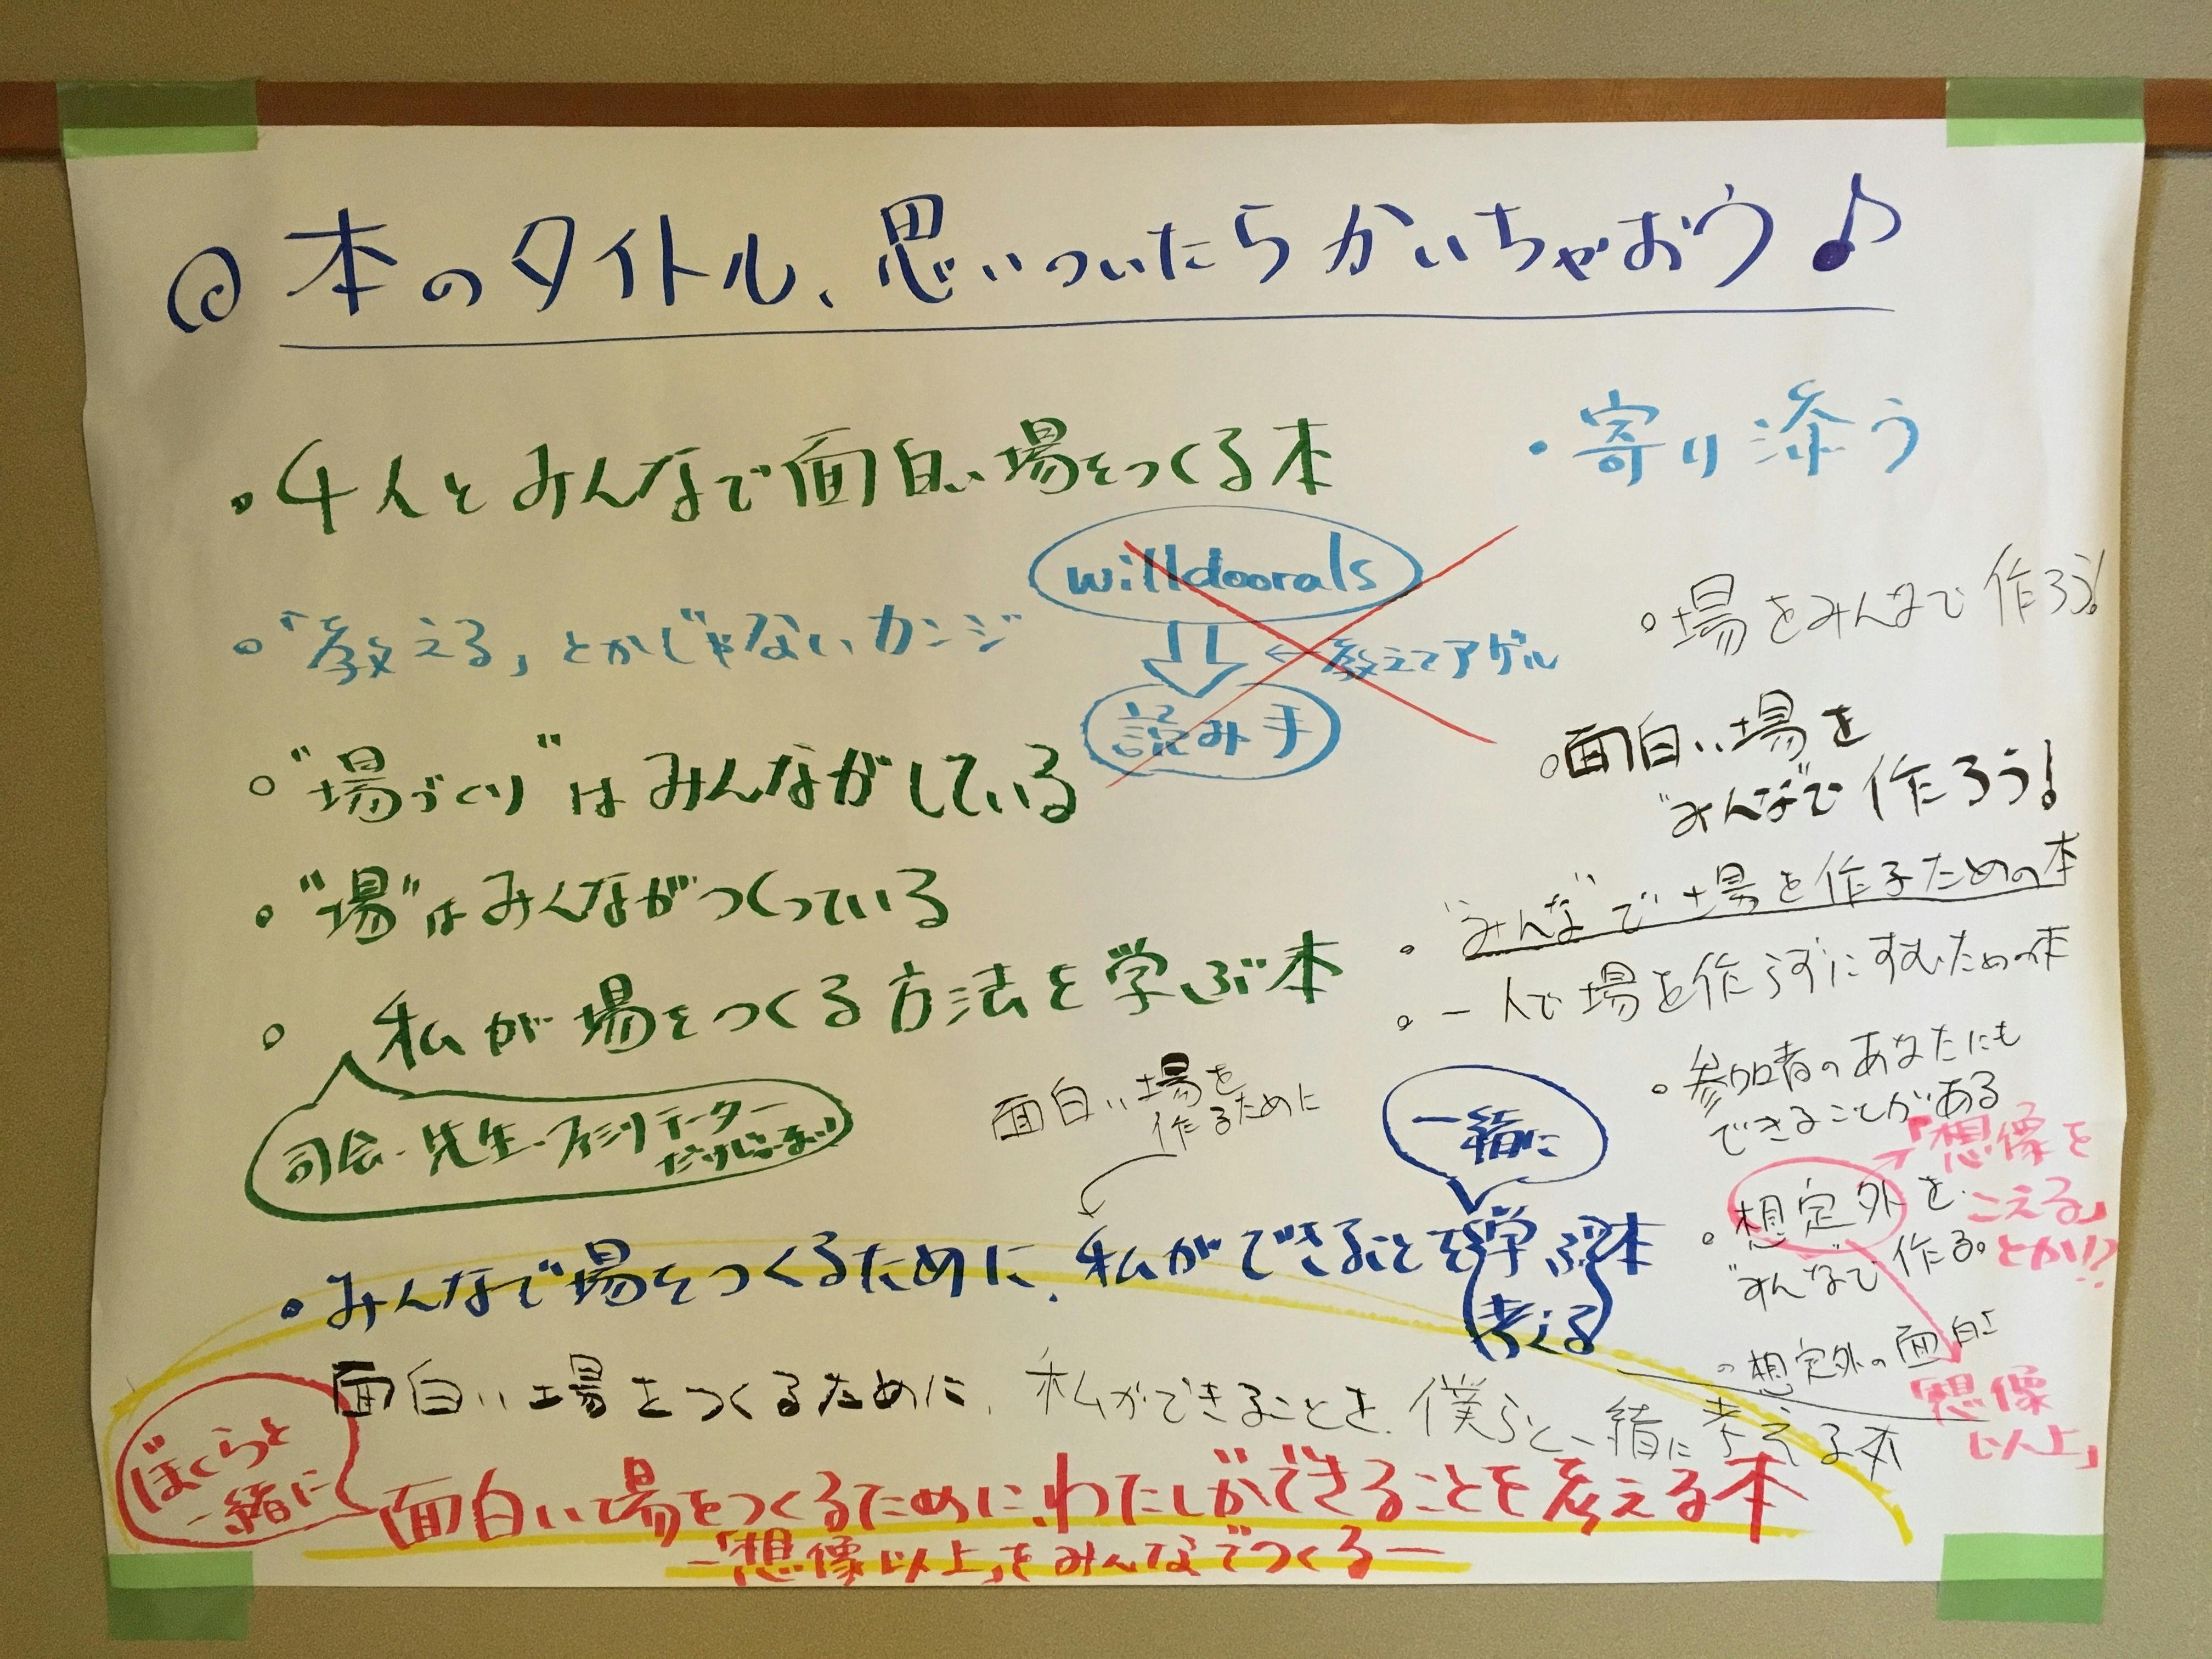 本のタイトル、思いついたらかいちゃおう♪
・4人とみんなで面白い場をつくる本
・寄り添う
willdoorals
。「教える」とかじゃないカンジ
←教えてアゲル
読み手
。場をみんなで作ろう!
。面白い場を
"みんな"で作ろう!
。"場づくり"はみんながしている
。"場"はみんながつくっている
。"みんな"で場を作るための本
。私が場をつくる方法を学ぶ本
。一人で場を作らずにすむための本
司会・先生・ファシリテーター
だけじゃない
面白い場を
作るために
一緒に
。参加者のあなたにも
できることがある
「想像を
こえる」
とか!?
。想定外を
"みんな"で作る。
・みんなで場をつくるために、私ができることを学ぶ本
(考える)
。想定外の面白さ
「想像
以上」
面白い場をつくるために、私ができることを、僕らと一緒に考える本
ぼくらと
一緒に
面白い場をつくるために、わたしができることを考える本
―「想像以上」をみんなでつくる―